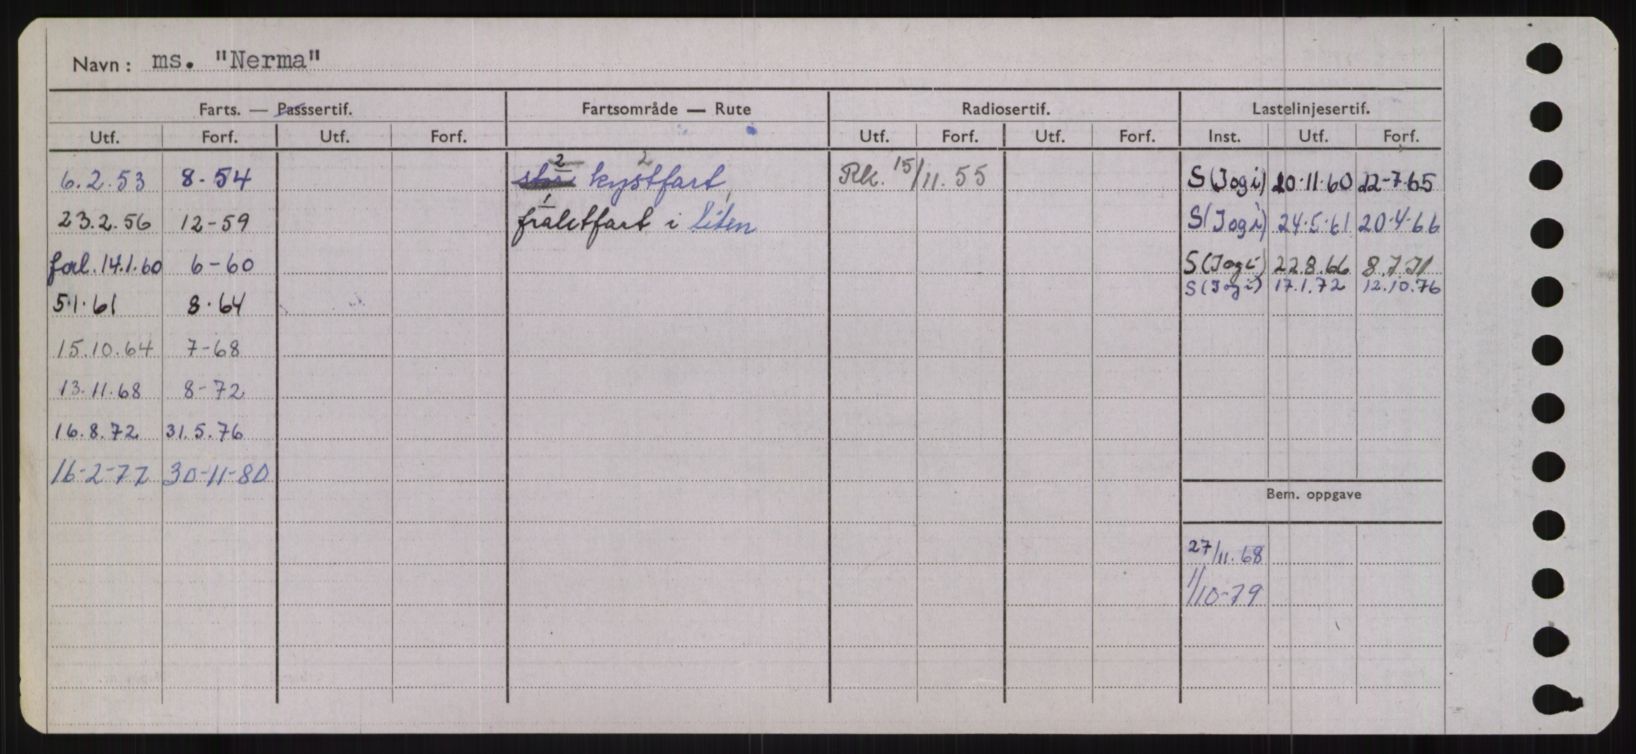 Navn: ms. "Nerma"
Farts. — Passsertif. Fartsområde — Rute Radiosertif. Lastelinjesertif.
Utf. Forf. Utf. Forf. Utf. Forf. Utf. Forf. Inst. Utf. Forf.
2 2
6.2.53 8-54 stor kystfart, Rk. 15/11.55 S(Jogi) 20.11.60 22-7-65
1
23.2.56 12-59 fraktfart i liten S(Jogi) 24.5.61 20.4.66
forl. 14.1.60 6-60 S(Jogi) 22.8.66 8.7.71
S(Jogi) 17.1.72 12.10.76
5.1.61 8.64
15.10.64 7-68
13.11.68 8-72
16.8.72 31.5.76
16-2-77 30-11-80
Bem. oppgave
27/11.68
1/10-79